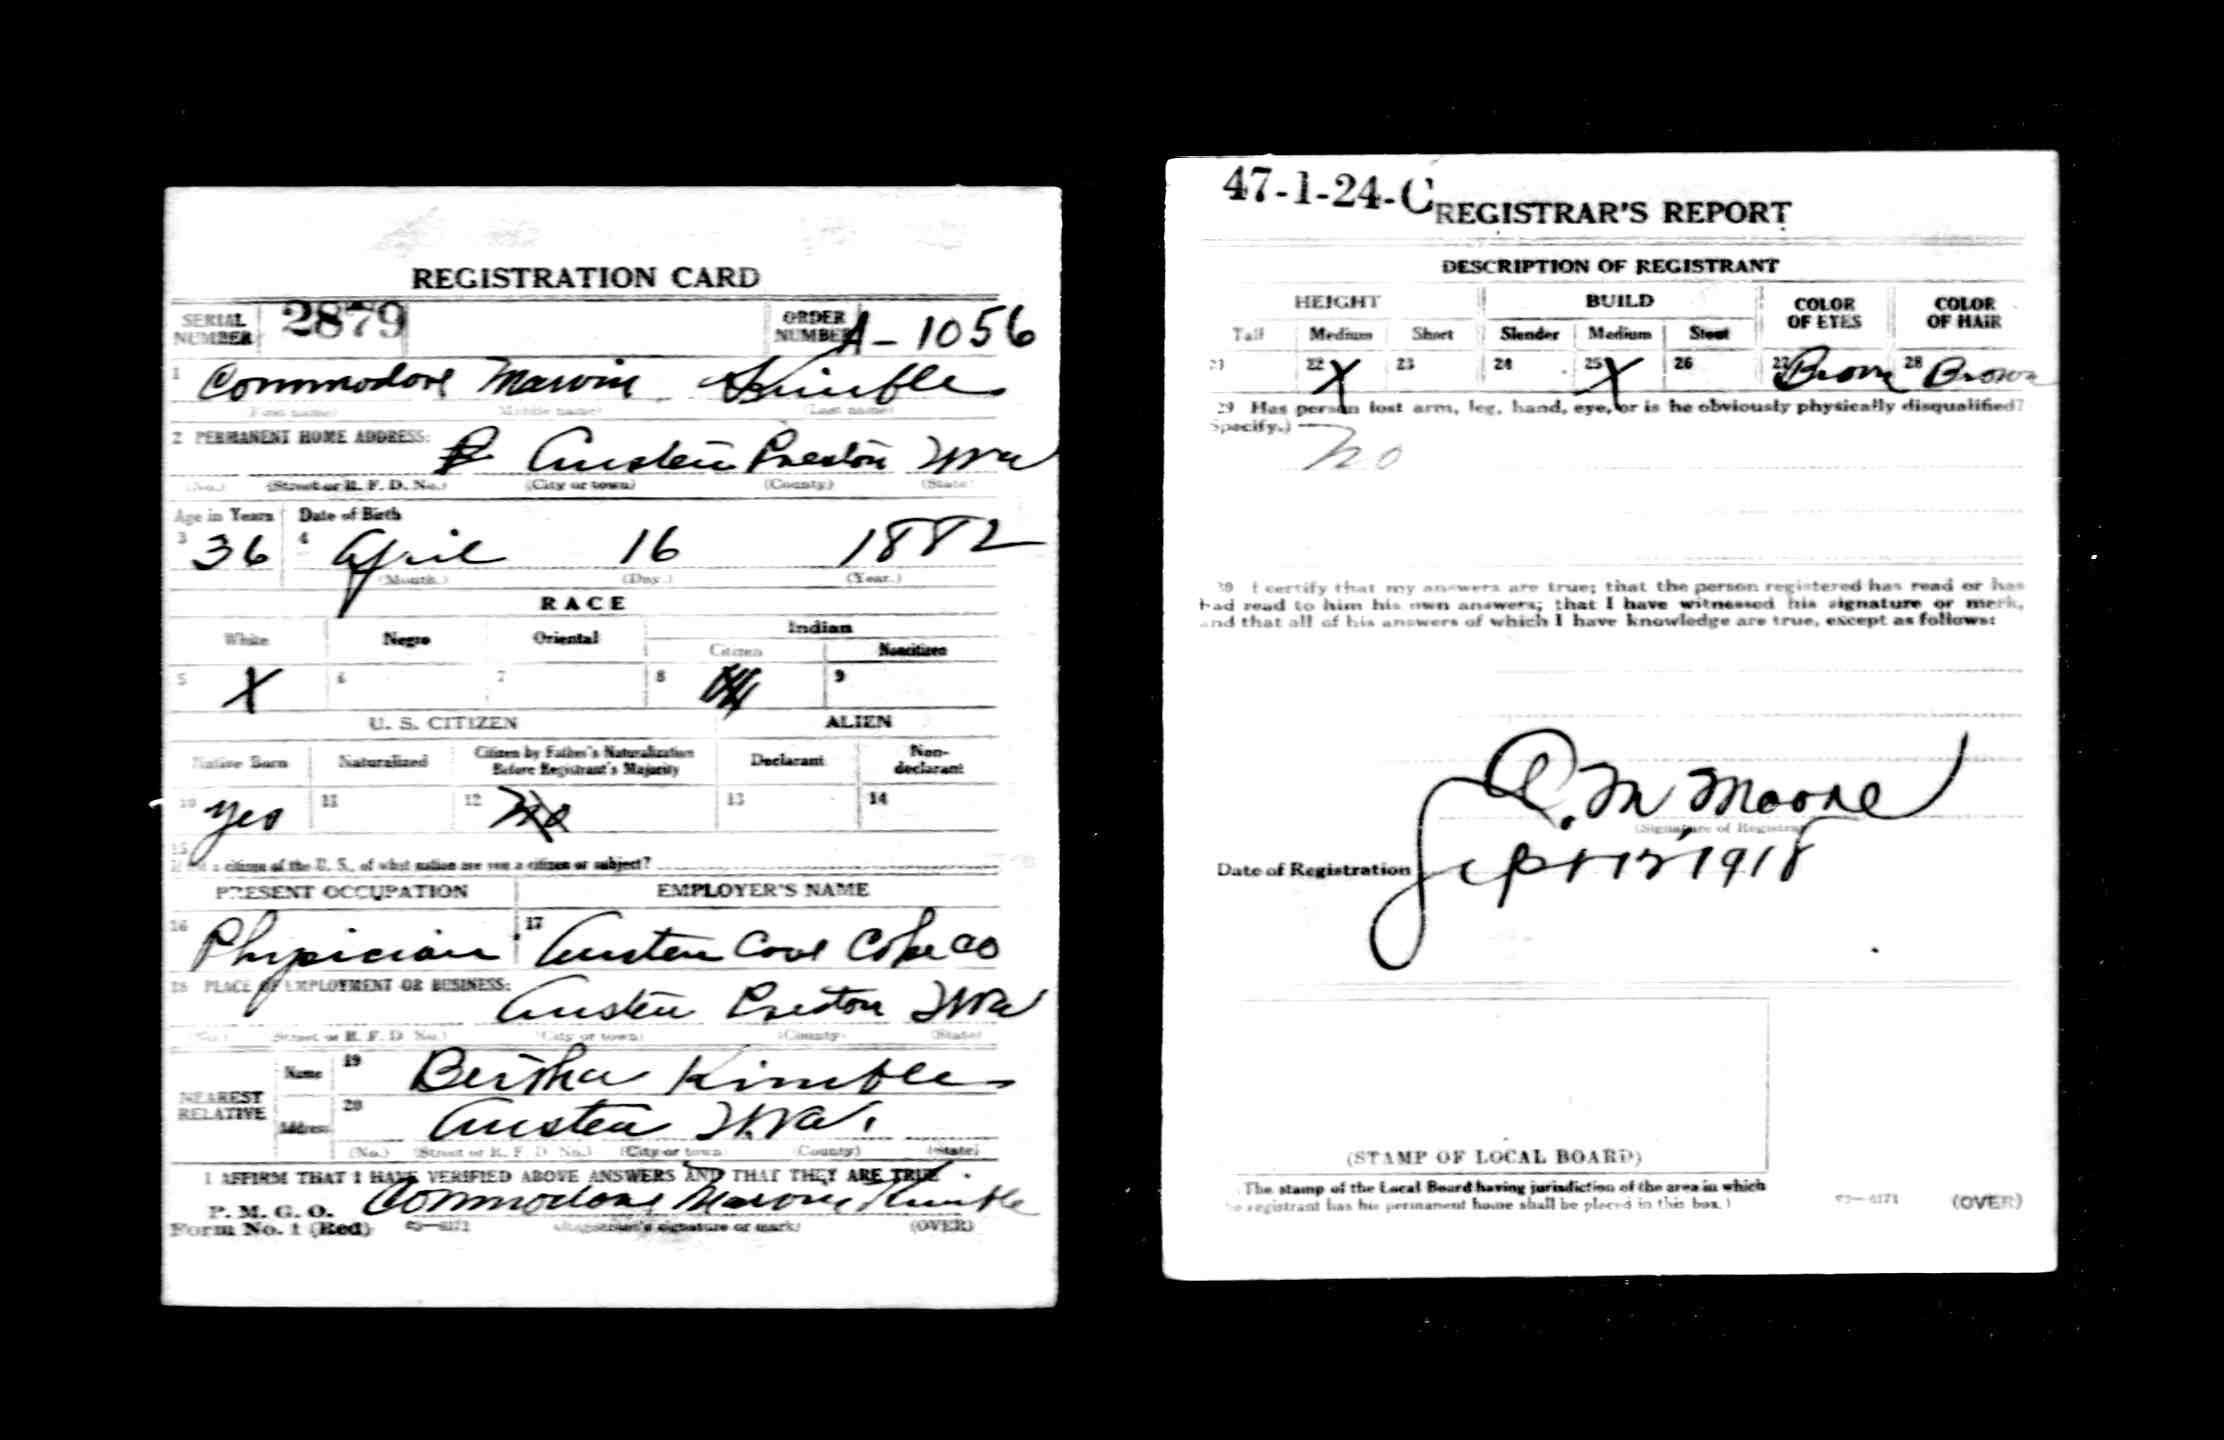 REGISTRATION CARD
SERIAL NUMBER 2879 ORDER NUMBER A-1056
1 Commodore Marvin Kimble
(First name) (Middle name) (Last name)
2 PERMANENT HOME ADDRESS:
Austen Preston WVa
(No.) (Street or R. F. D. No.) (City or town) (County) (State)
Age in Years Date of Birth
3 36 4 April 16 1882
(Month.) (Day.) (Year.)
RACE
White Negro Oriental Indian
Citizen Noncitizen
5 X 6 7 8 9
U. S. CITIZEN ALIEN
Native Born Naturalized Citizen by Father's Naturalization Before Registrant's Majority Declarant Non-declarant
10 Yes 11 12 No 13 14
15 If not a citizen of the U. S., of what nation are you a citizen or subject?
PRESENT OCCUPATION EMPLOYER'S NAME
16 Physician 17 Austen Coal Coke Co
18 PLACE OF EMPLOYMENT OR BUSINESS:
Austen Preston WVa
(No.) (Street or R. F. D. No.) (City or town) (County) (State)
NEAREST RELATIVE
Name 19 Bertha Kimble
Address 20 Austen W.Va.
(No.) (Street or R. F. D. No.) (City or town) (County) (State)
I AFFIRM THAT I HAVE VERIFIED ABOVE ANSWERS AND THAT THEY ARE TRUE
P. M. G. O.
Form No. 1 (Red) Commodore Marvin Kimble
(Registrant's signature or mark) (OVER)
47-1-24-C
REGISTRAR'S REPORT
DESCRIPTION OF REGISTRANT
HEIGHT BUILD COLOR OF EYES COLOR OF HAIR
Tall Medium Short Slender Medium Stout
21 22 X 23 24 25 X 26 27 Brown 28 Brown
29 Has person lost arm, leg, hand, eye, or is he obviously physically disqualified?
(Specify.) No
30 I certify that my answers are true; that the person registered has read or has
had read to him his own answers; that I have witnessed his signature or mark,
and that all of his answers of which I have knowledge are true, except as follows:
A. M. Moore
(Signature of Registrar)
Date of Registration Sept 12, 1918
(STAMP OF LOCAL BOARD)
(The stamp of the Local Board having jurisdiction of the area in which
the registrant has his permanent home shall be placed in this box.)
(OVER)